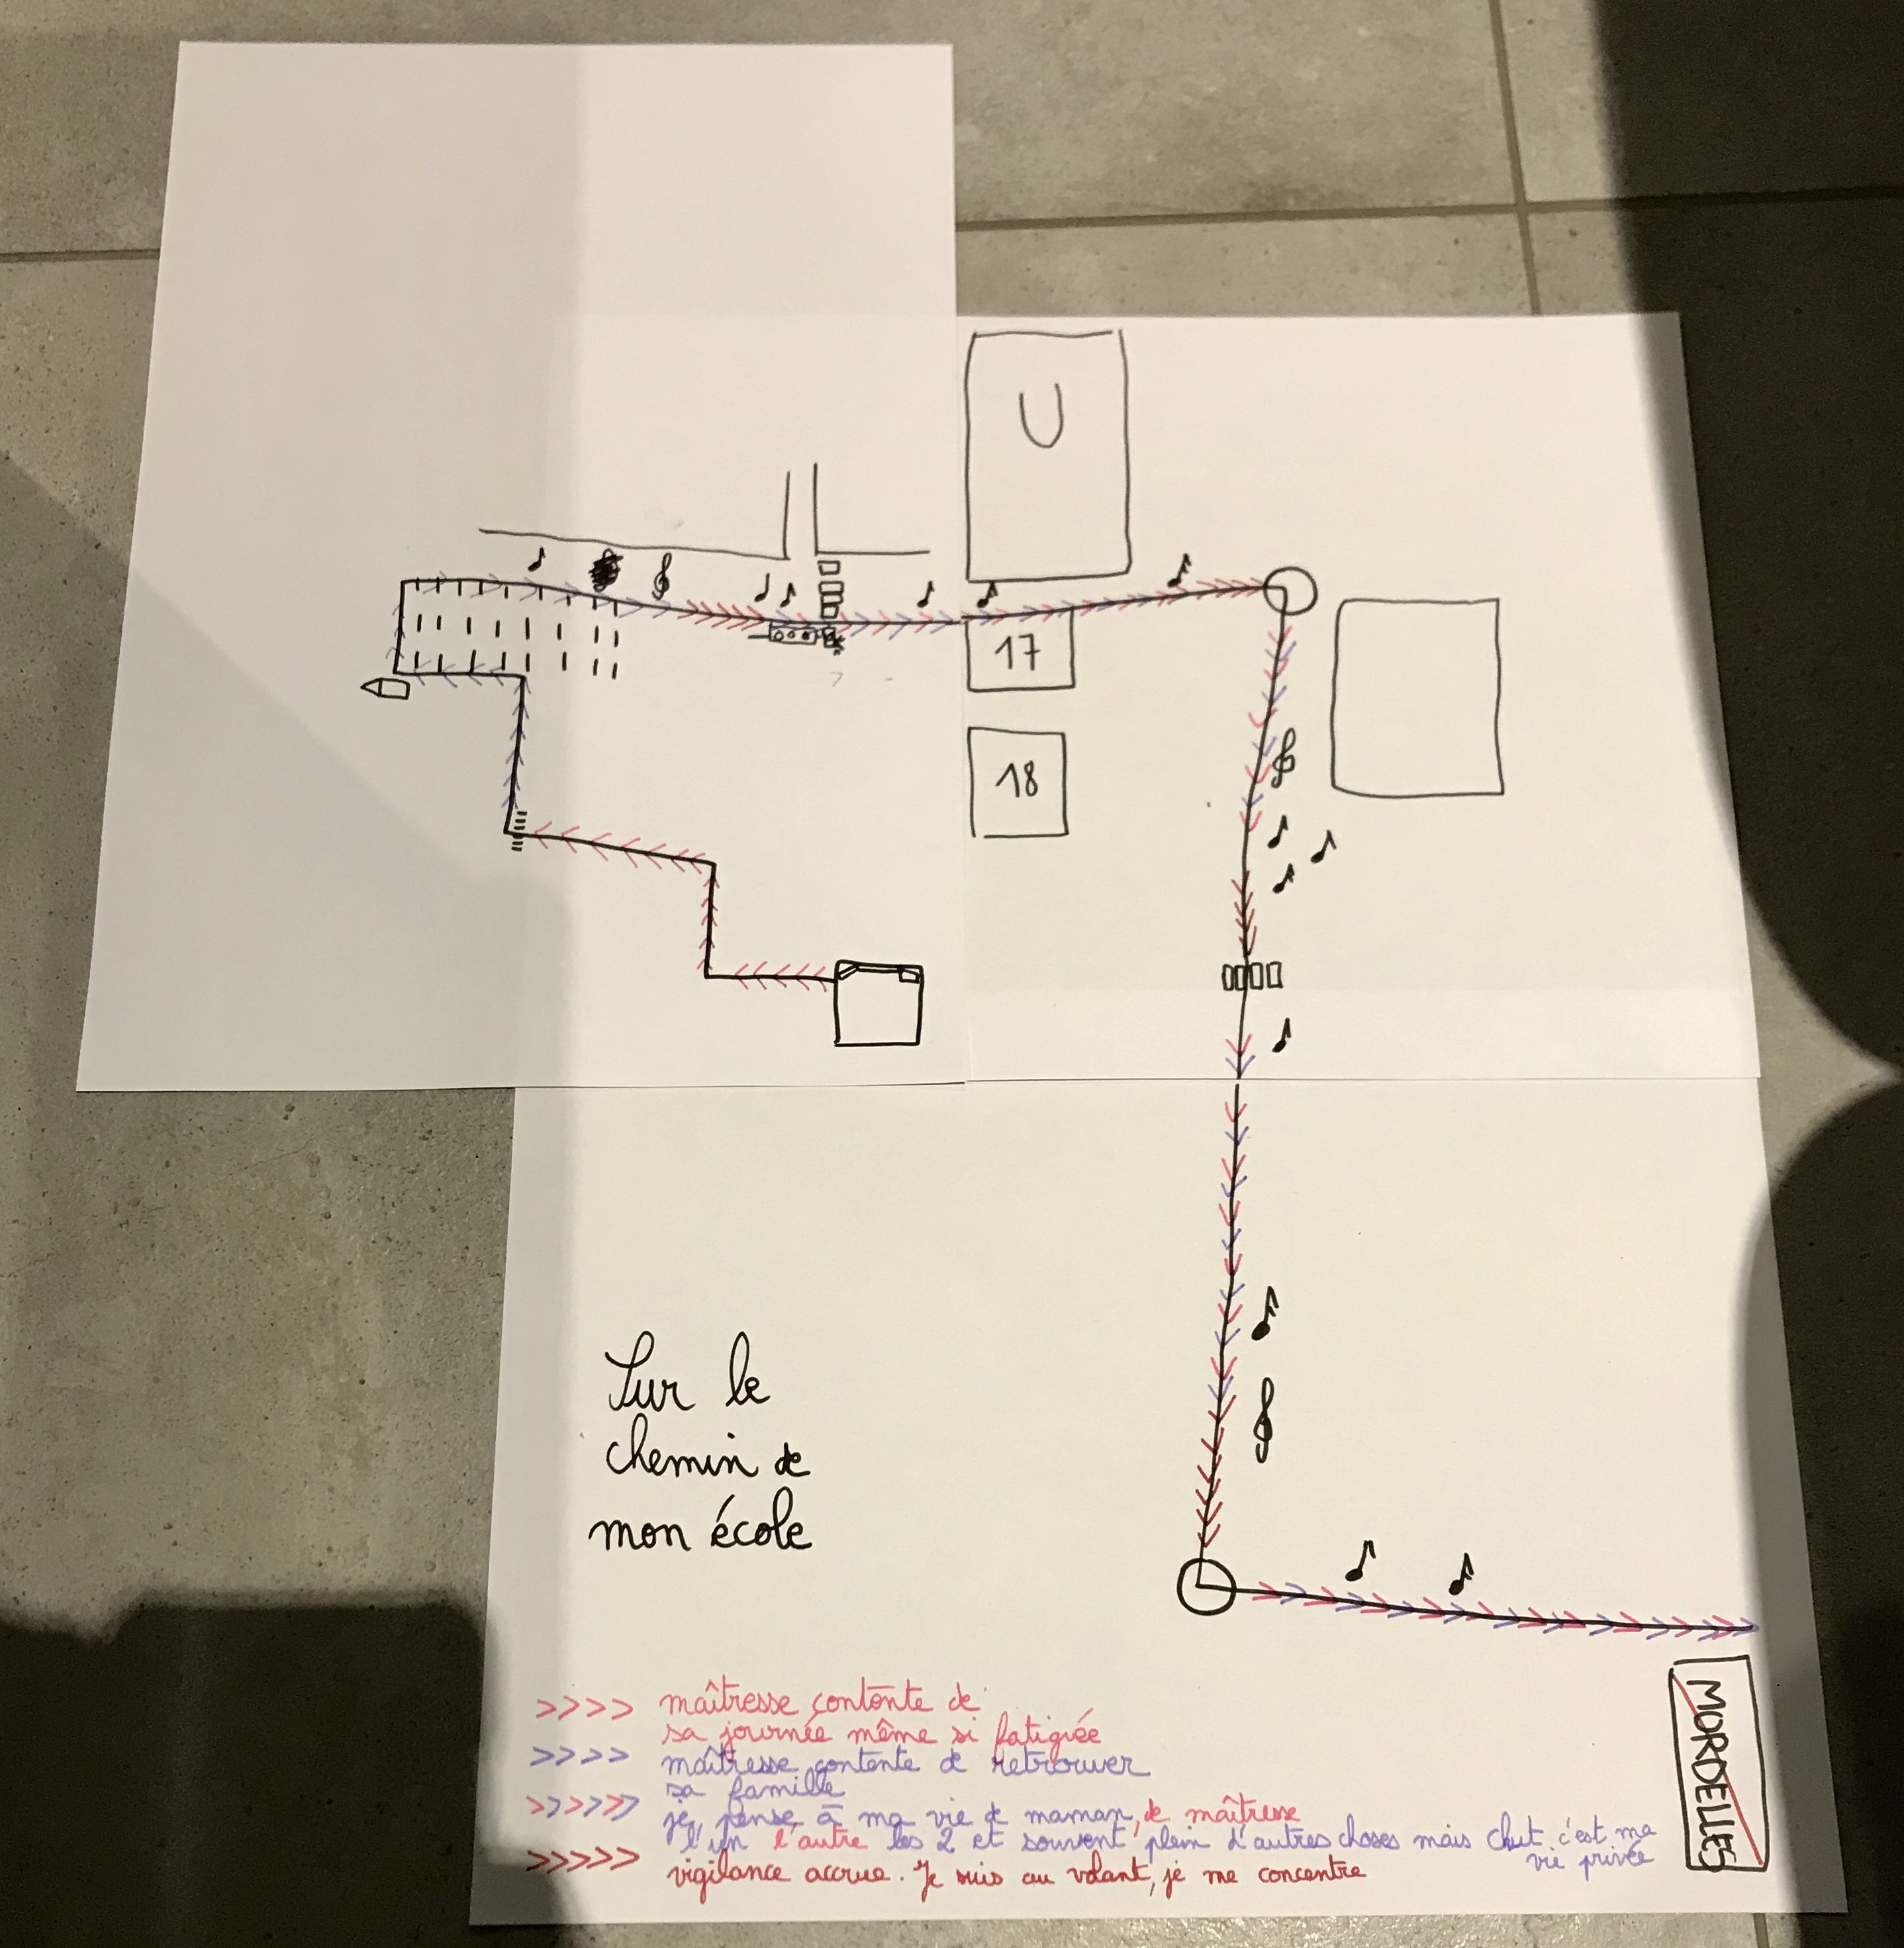 U
17
18
Sur le
chemin de
mon école
>>>> maîtresse contente de
sa journée même si fatiguée
>>>> maîtresse contente de retrouver
sa famille
>>>>>> je pense à ma vie de maman, de maîtresse
l'un l'autre les 2 et souvent plein d'autres choses mais chut c'est ma
vie privée
>>>>> vigilance accrue. Je suis au volant, je me concentre
MORDELLES